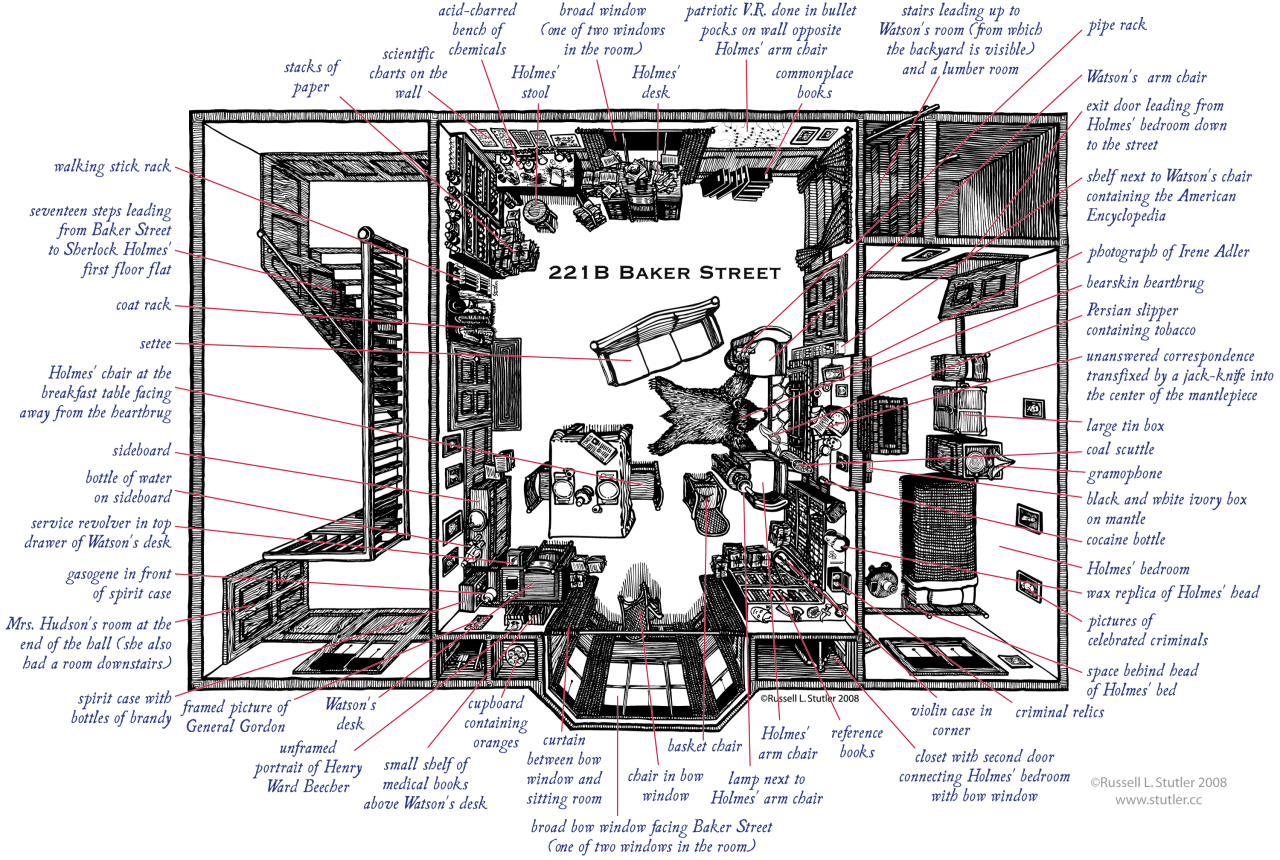 acid-charred
bench of
chemicals
broad window
(one of two windows
in the room)
patriotic V.R. done in bullet
pocks on wall opposite
Holmes' arm chair
stairs leading up to
Watson's room (from which
the backyard is visible)
and a lumber room
pipe rack
stacks of
paper
scientific
charts on the
wall
Holmes'
stool
Holmes'
desk
commonplace
books
Watson's arm chair
exit door leading from
Holmes' bedroom down
to the street
walking stick rack
shelf next to Watson's chair
containing the American
Encyclopedia
seventeen steps leading
from Baker Street
to Sherlock Holmes'
first floor flat
221B Baker Street
photograph of Irene Adler
bearskin hearthrug
coat rack
Persian slipper
containing tobacco
settee
unanswered correspondence
transfixed by a jack-knife into
the center of the mantlepiece
Holmes' chair at the
breakfast table facing
away from the hearthrug
large tin box
sideboard
coal scuttle
gramophone
bottle of water
on sideboard
black and white ivory box
on mantle
service revolver in top
drawer of Watson's desk
cocaine bottle
gasogene in front
of spirit case
Holmes' bedroom
wax replica of Holmes' head
Mrs. Hudson's room at the
end of the hall (she also
had a room downstairs.)
pictures of
celebrated criminals
space behind head
of Holmes' bed
spirit case with
bottles of brandy
framed picture of
General Gordon
Watson's
desk
cupboard
containing
oranges
©Russell L. Stutler 2008
violin case in
corner
criminal relics
unframed
portrait of Henry
Ward Beecher
small shelf of
medical books
above Watson's desk
curtain
between bow
window and
sitting room
basket chair
chair in bow
window
Holmes'
arm chair
reference
books
lamp next to
Holmes' arm chair
closet with second door
connecting Holmes' bedroom
with bow window
broad bow window facing Baker Street
(one of two windows in the room)
©Russell L. Stutler 2008
www.stutler.cc